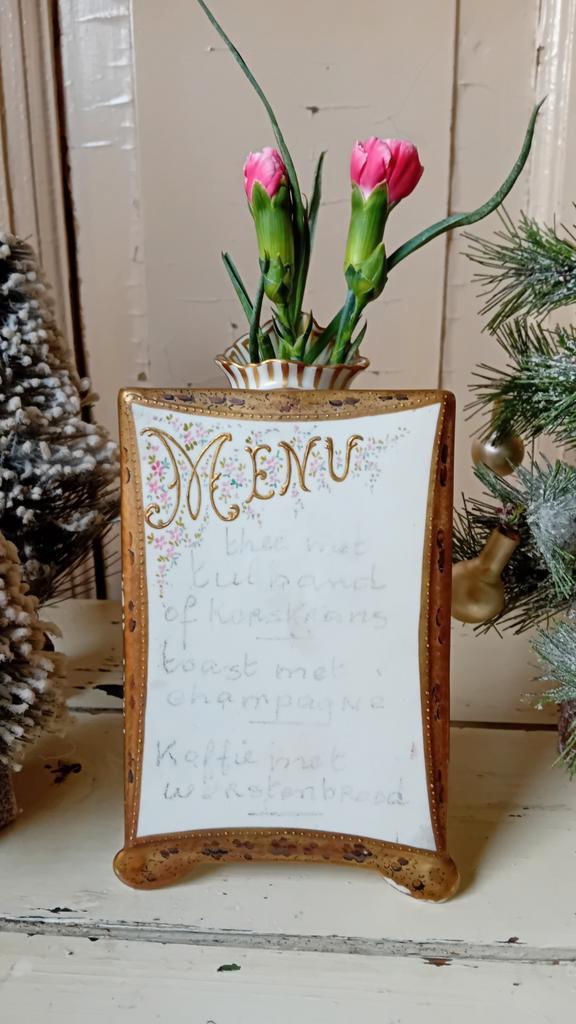 MENU
thee met
tulband
of Kerskrans
toast met
champagne
Koffie met
worstenbrood